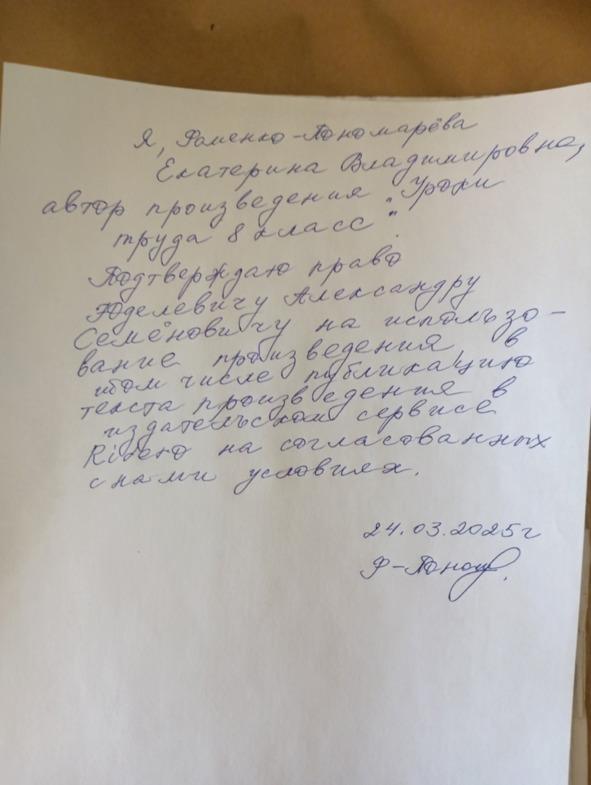 Я, Фоменко-Пономарёва
Екатерина Владимировна,
автор произведения "Уроки
труда 8 класс".
Подтверждаю право
Юделевичу Александру
Семёновичу на использо-
вание произведения в
том числе публикацию
текста произведения в
издательском сервисе
Ridero на согласованных
с нами условиях.
24.03.2025г
Ф-Поном